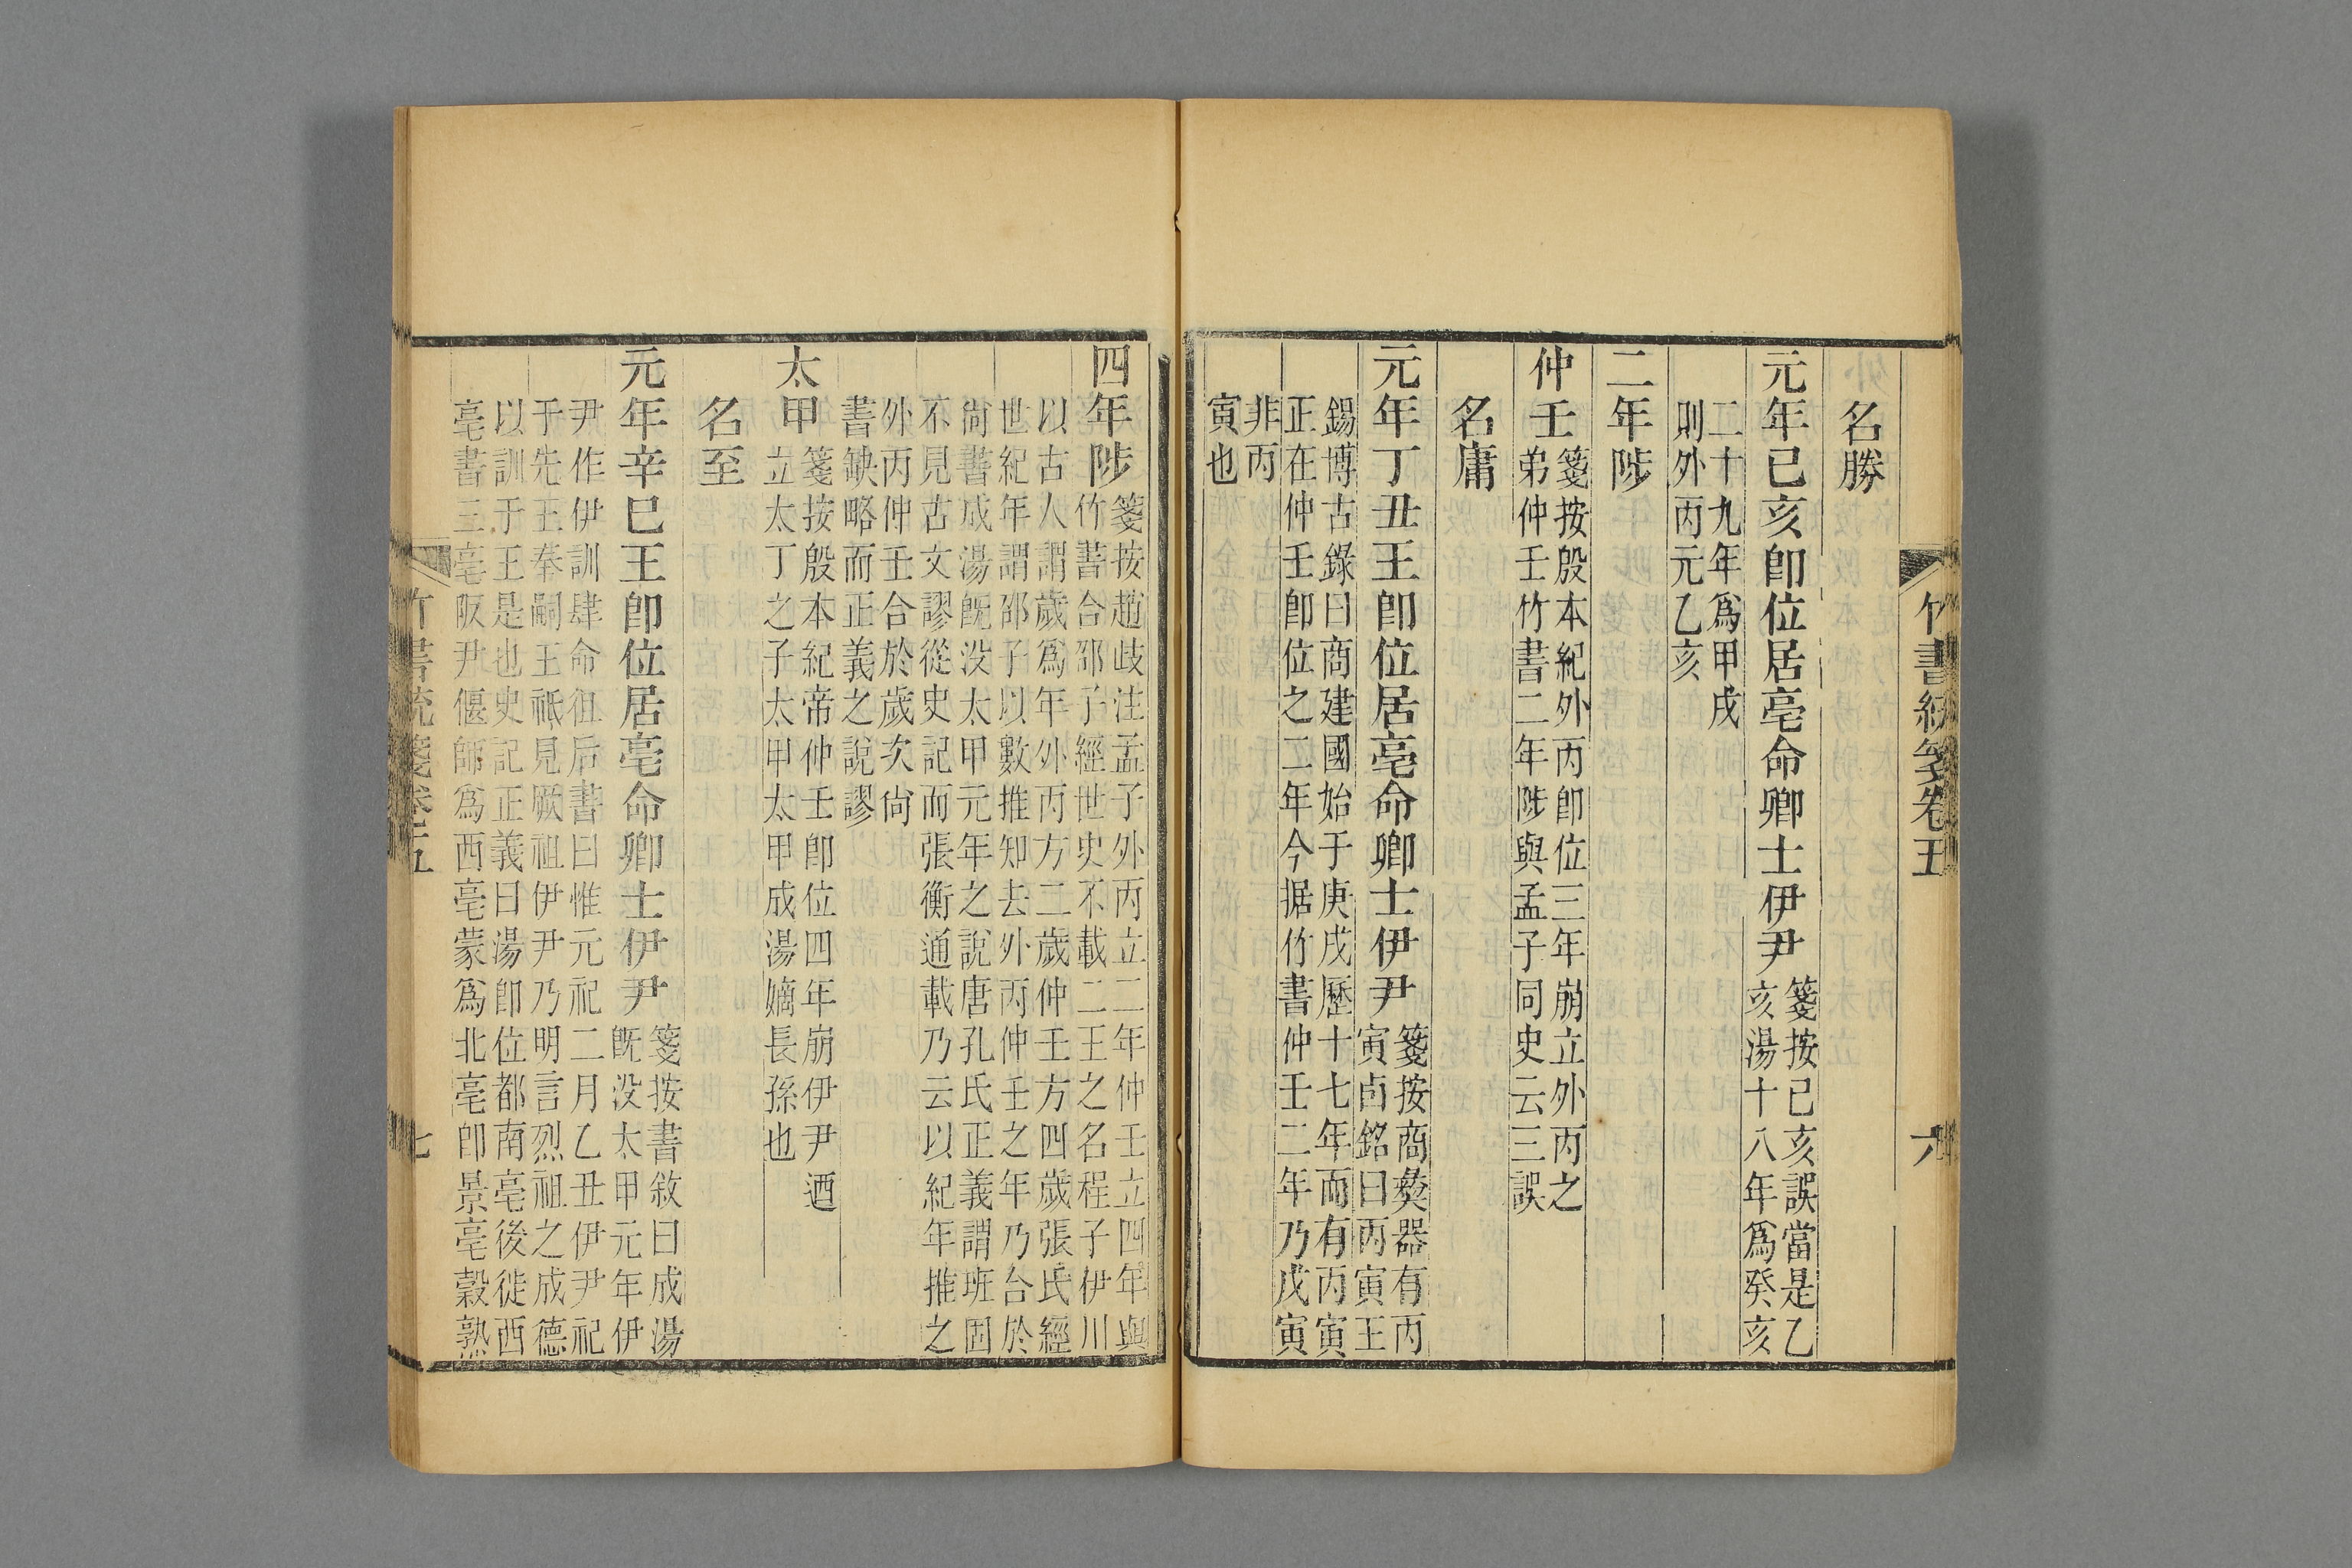 竹書統箋卷五
六
名勝
元年已亥卽位居亳命卿士伊尹
箋按已亥誤當是乙
亥湯十八年爲癸亥
二十九年爲甲戌
則外丙元乙亥
二年陟
仲壬
箋按殷本紀外丙卽位三年崩立外丙之
弟仲壬竹書二年陟與孟子同史云三誤
名庸
元年丁丑王卽位居亳命卿士伊尹
箋按商彝器有丙
寅卣銘曰丙寅王
錫博古錄曰商建國始于庚戌歷十七年而有丙寅
正在仲壬卽位之二年今据竹書仲壬二年乃戊寅
非丙
寅也
四年陟
箋按趙歧注孟子外丙立二年仲壬立四年與
竹書合邵子經世史不載二王之名程子伊川
以古人謂歲爲年外丙方二歲仲壬方四歲張氏經
世紀年謂邵子以數推知去外丙仲壬之年乃合於
尙書成湯旣没太甲元年之說唐孔氏正義謂班固
不見古文謬從史記而張衡通載乃云以紀年推之
外丙仲壬合於歲次尙
書缺略而正義之說謬
太甲
箋按殷本紀帝仲壬卽位四年崩伊尹迺
立太丁之子太甲太甲成湯嫡長孫也
名至
元年辛巳王卽位居亳命卿士伊尹
箋按書敘曰成湯
旣没太甲元年伊
尹作伊訓肆命徂后書曰惟元祀二月乙丑伊尹祀
于先王奉嗣王祗見厥祖伊尹乃明言烈祖之成德
以訓于王是也史記正義曰湯卽位都南亳後徙西
亳書三亳阪尹偃師爲西亳蒙爲北亳卽景亳穀熟
竹書統箋卷五
七